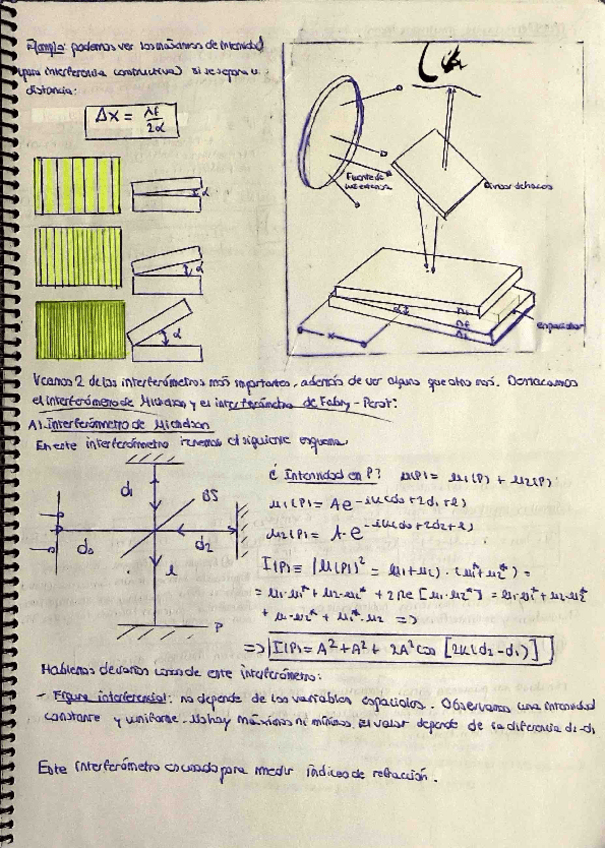 Ejemplo: podemos ver los máximos de intensidad
(para interferencia constructiva) si se separa una
distancia:
Δx = λf / 2α
α
α
α
Fuente de luz extensa
Divisor de haces
n1
nf
n1
α
x
espaciador
Veamos 2 de los interferómetros más importantes, además de ver alguno que otro más. Destacamos
el interferómetro de Michelson y el interferómetro de Fabry-Perot:
A) Interferómetro de Michelson
En este interferómetro tenemos el siguiente esquema
d1
BS
d0
d2
l
P
¿Intensidad en P? u(P) = u1(P) + u2(P):
u1(P) = A e^-ik(d0+2d1+l)
u2(P) = A·e^-ik(d0+2d2+l)
I(P) = |u(P)|² = (u1+u2)·(u1*+u2*) =
= u1·u1* + u2·u2* + 2Re[u1·u2*] = u1·u1* + u2·u2*
+ u1·u2* + u1*·u2 =>
=> I(P) = A² + A² + 2A² cos[2k(d2-d1)]
Hablemos de varias cosas de este interferómetro:
- Figura interferencial: no depende de las variables espaciales. Observamos una intensidad
constante y uniforme. No hay máximos ni mínimos. El valor depende de la diferencia d2-d1
Este interferómetro es usado para medir índices de refracción.